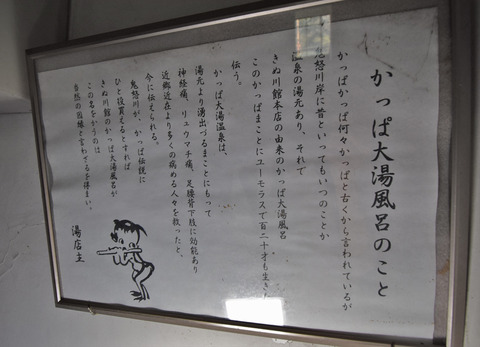 かっぱ大湯風呂のこと
かっぱかっぱ何々かっぱと古くから言われているが
鬼怒川岸に昔といってもいつのことか
温泉の湯元あり、それで
きぬ川館本店の由来のかっぱ大湯風呂
このかっぱまことにユーモラスで百二十才も生きたと
伝う。
かっぱ大湯温泉は、
湯元より湧出づるまことにもって
神経痛、リュウマチ痛、足腰背下肢に効能あり
近郷近在より多くの病める人々を救ったと、
今に伝えられる。
鬼怒川が、かっぱ伝説に
ひと役買えるとすれば
きぬ川館のかっぱ大湯風呂が
この名をかうのは
当然の因縁と言わざるを得まい。
湯店主